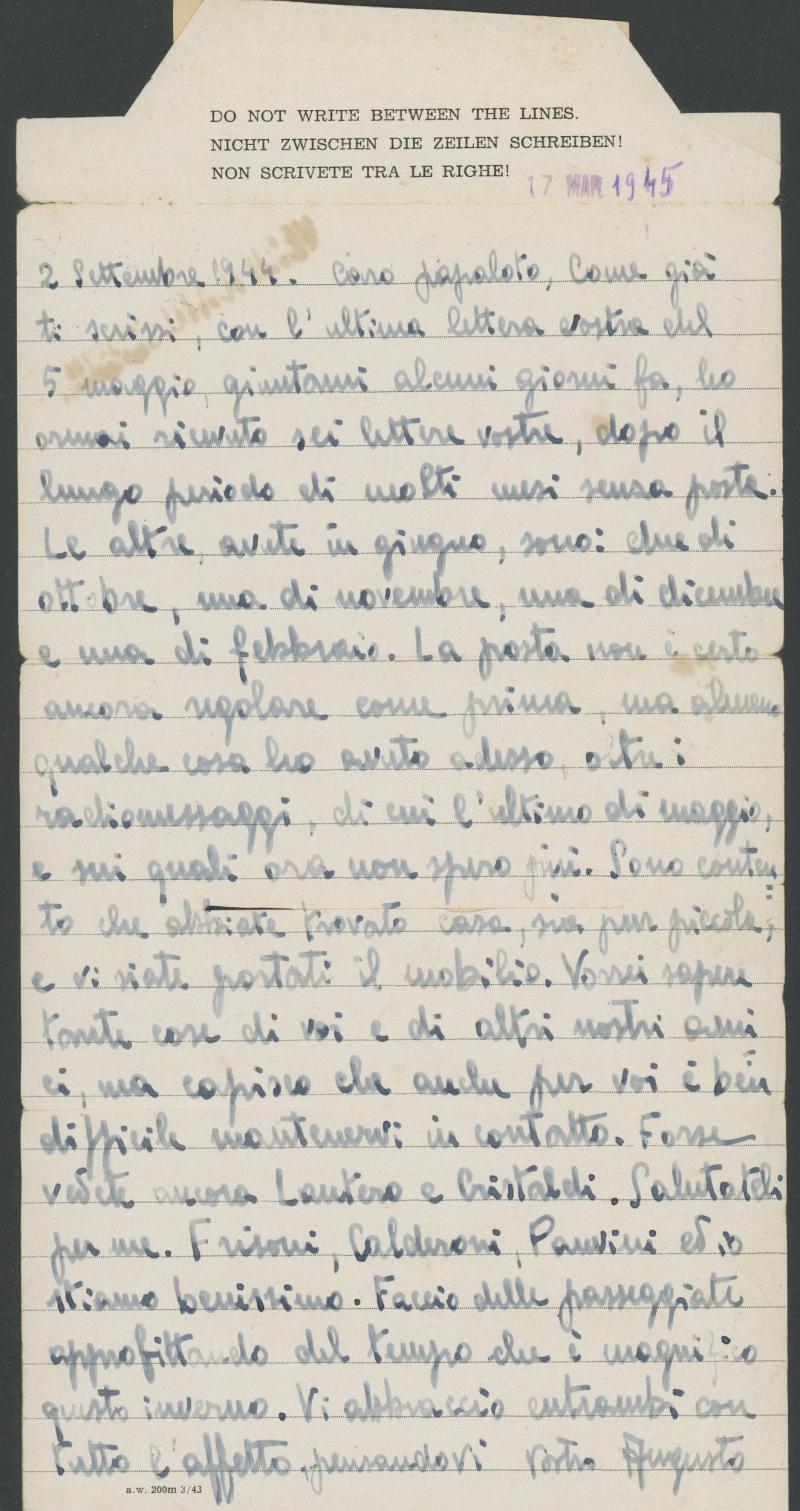 DO NOT WRITE BETWEEN THE LINES.
NICHT ZWISCHEN DIE ZEILEN SCHREIBEN!
NON SCRIVETE TRA LE RIGHE!
17 MAR 1945
2 Settembre 1944. Caro papaloto, Come già
ti scrissi, con l'ultima lettera vostra del
5 maggio, giuntami alcuni giorni fa, ho
ormai ricevuto sei lettere vostre, dopo il
lungo periodo di molti mesi senza posta.
Le altre, avute in giugno, sono: due di
ottobre, una di novembre, una di dicembre
e una di febbraio. La posta non è certo
ancora regolare come prima, ma almeno
qualche cosa ho avuto adesso, oltre i
radiomessaggi, di cui l'ultimo di maggio,
e sui quali ora non spero più. Sono conten
to che abbiate trovato casa, sia pur piccola,
e vi siate portati il mobilio. Vorrei sapere
tante cose di voi e di altri nostri ami
ci, ma capisco che anche per voi è ben
difficile mantenervi in contatto. Forse
vedete ancora Lantero e Cristaldi. Salutateli
per me. Frisoni, Calderoni, Pauvini ed io
stiamo benissimo. Faccio delle passeggiate
approfittando del tempo che è magnifico
questo inverno. Vi abbraccio entrambi con
tutto l'affetto, pensandovi vostro Augusto
a.w. 200m 3/43